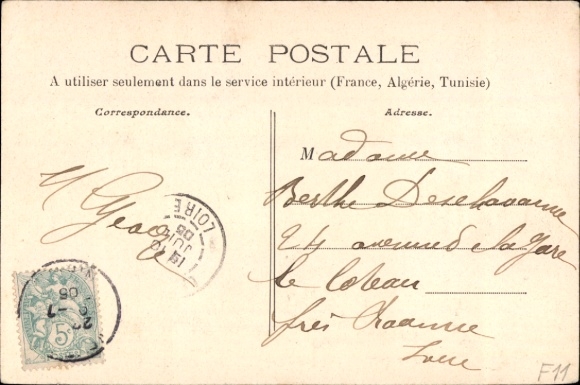 CARTE POSTALE
A utiliser seulement dans le service intérieur (France, Algérie, Tunisie)
Correspondance.
Adresse.
Madame
Berthe Dechavanne
24 avenue de la Gare
le Coteau
près Roanne
Loire
LOIRE
JUIL
05
5
F11